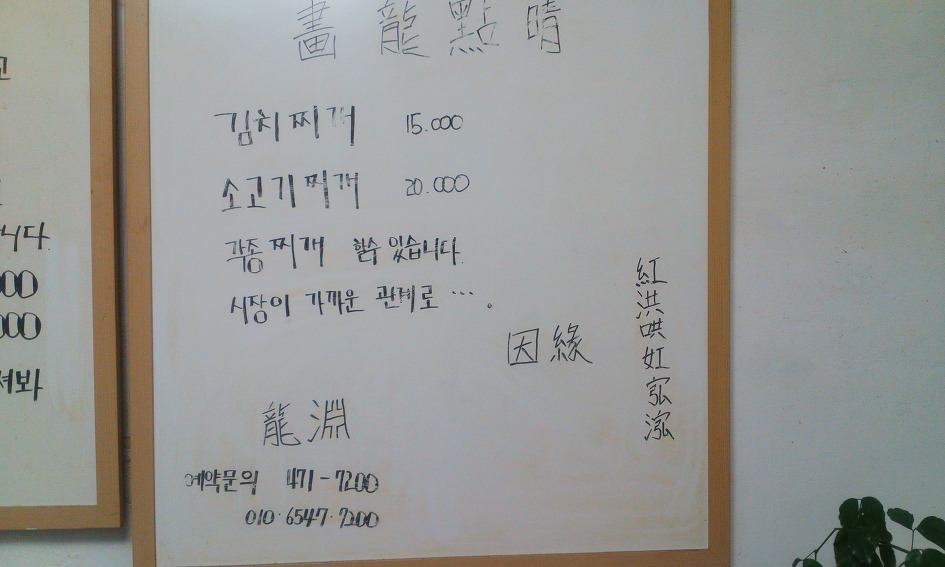 고
니다
000
000
셔봐
畵龍點晴
김치찌개 15.000
소고기찌개 20.000
각종찌개 할수있습니다.
시장이 가까운 관계로 … .
因緣
紅洪哄虹宖泓
龍淵
예약문의 471-7200
010·6547·7200